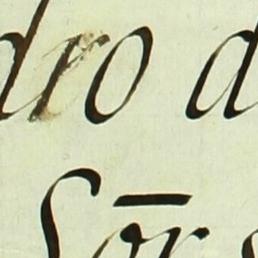 dro d
Sōr